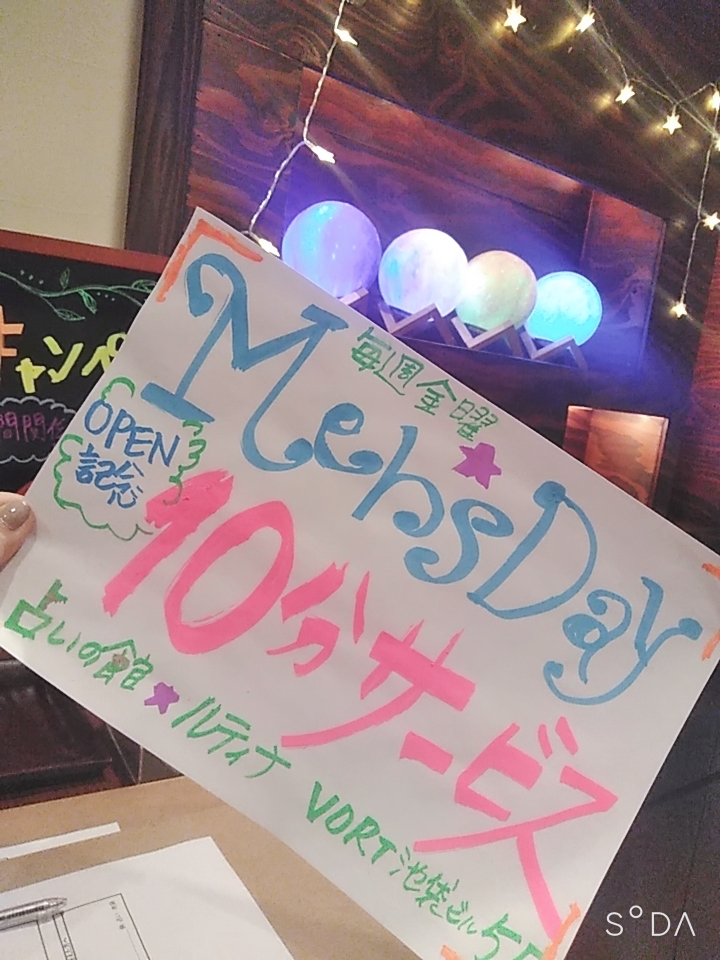 毎週金曜
MensDay
OPEN
記念
10分サービス
占いの館★ルティナ
VORT池袋ビル5F
キャンペ
間関係
SODA